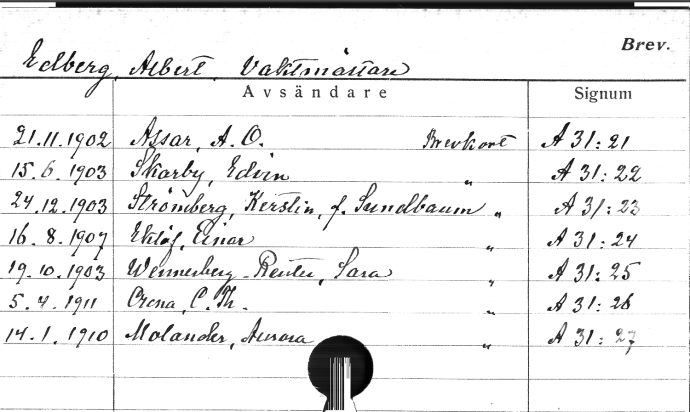 Brev.
Edberg, Albert, Vaktmästare
Avsändare Signum
21.11.1902 Assar, A. O. Brevkort A 31:21
15.6.1903 Skarby, Edvin " A 31:22
24.12.1903 Strömberg, Kerstin, f. Sundbaum " A 31:23
16.8.1907 Eklöf, Einar " A 31:24
19.10.1903 Wennerberg-Reuter, Sara " A 31:25
5.4.1911 C. Th. " A 31:26
14.1.1910 Molander, Aurora " A 31:27